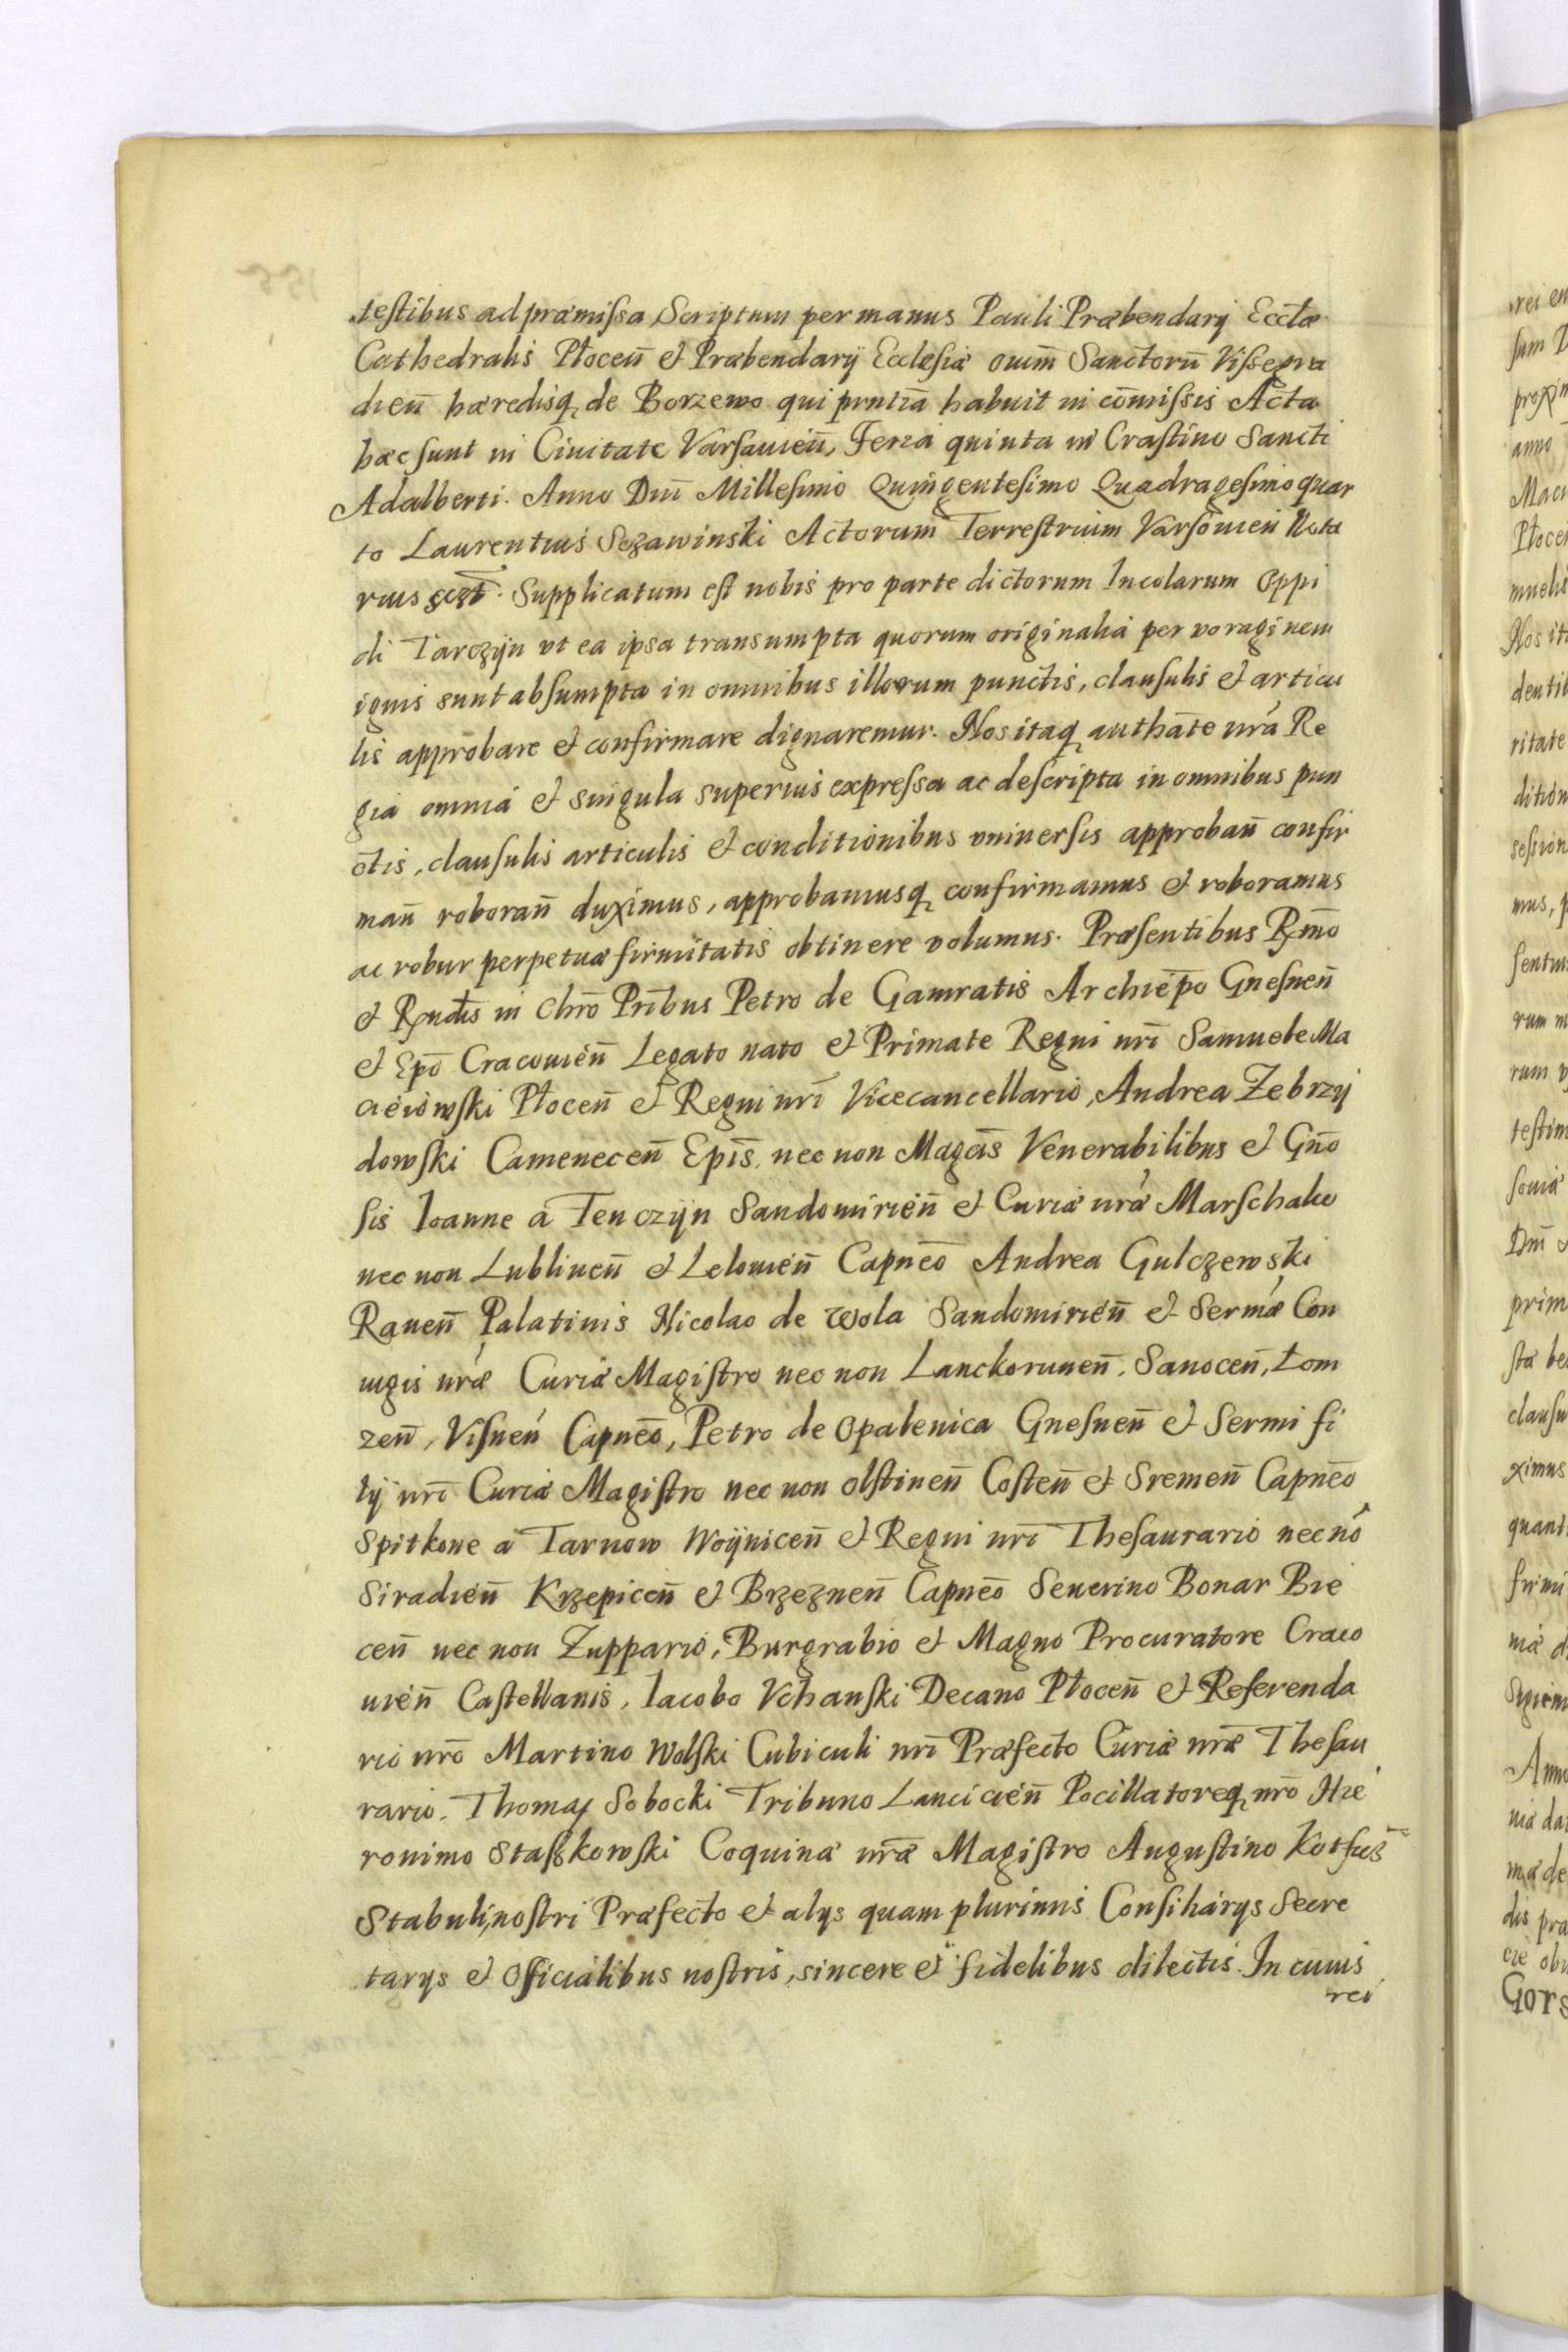 testibus ad præmissa Scriptum per manus Pauli Præbendarij Eccłæ
Cathedralis Płoceñ et Præbendarÿ Ecclesiæ ouim̃ Sanctorũ Vissegra
dieñ hæredisq̨ de Borzewo qui pnt̃ia habuit in com̃issis Acta
hæc sunt in Ciuitate Varsauień, Feria quinta in Crastino Sancti
Adalberti. Anno Dñi Millesimo Quingentesimo Quadragesimo quar
to Laurentius Sczawinski Actorum Terrestrium Varsouień Nota
rius Supplicatum est nobis pro parte dictorum Incolarum Oppi
di Tarczÿn vt ea ipsa transumpta quorum originalia per voraginem
ignis sunt absumpta in omnibus illorum punctis, clausulis et articu
lis approbare et confirmare dignaremur. Nos itaq̨ authãte nr̃a Re
gia omnia et singula superius expressa ac descripta in omnibus pun
ctis, clausulis articulis et conditionibus vniuersis approbañ confir
mañ roborañ duximus, approbamusq̨ confirmamus et roboramus
ac robur perpetuæ firmitatis obtinere volumus. Præsentibus Rm̃o
et Rndis in Chro Prĩbus Petro de Gamratis Archiep̃o Gnesneñ
et Ep̃o Cracouień Legato nato et Primate Regni nrĩ Samuele Ma
cieiowski Płoceñ et Regni nrĩ Vicecancellario, Andrea Zebrzÿ
dowski Cameneceñ Epĩs, nec non Magcis Venerabilibus et Gño
sis Ioanne a Tenczÿn Sandomirień et Curiæ nræ Marschalco
nec non Lublineñ et Lelouień Capneõ Andrea Gulczewski
Raueñ Palatinis Nicolao de Wola Sandomirień et Sermæ Con
iugis nræ Curiæ Magistro nec non Lanckoruneñ, Sanoceñ, Łom
zeñ, Visneń Capneõ, Petro de Opalenica Gnesneñ et Sermi fi
lÿ nrĩ Curiæ Magistro nec non Olstineñ Costeñ et Sremeñ Capneõ
Spitkone a Tarnow Woÿniceñ et Regni nrĩ Thesaurario nec nõ
Siradień Krzepiceñ et Brzezneñ Capneõ Seuerino Bonar Bie
ceñ nec non Zuppario, Burgrabio et Magno Procuratore Craco
uień Castellanis, Iacobo Vchanski Decano Płoceñ et Referenda
rio nrõ Martino Wolski Cubiculi nrĩ Præfecto Curiæ nræ̃ Thesau
rario. Thoma Sobocki Tribuno Lancicień Pocillatoreq̨ nrõ Hie
ronimo Staszkowski Coquinæ nræ̃ Magistro Augustino
Stabuli nostri Præfecto et alÿs quam plurimis Consiliarÿs Secre
tarÿs et Officialibus nostris, sincere et fidelibus dilectis. In cuius
rei